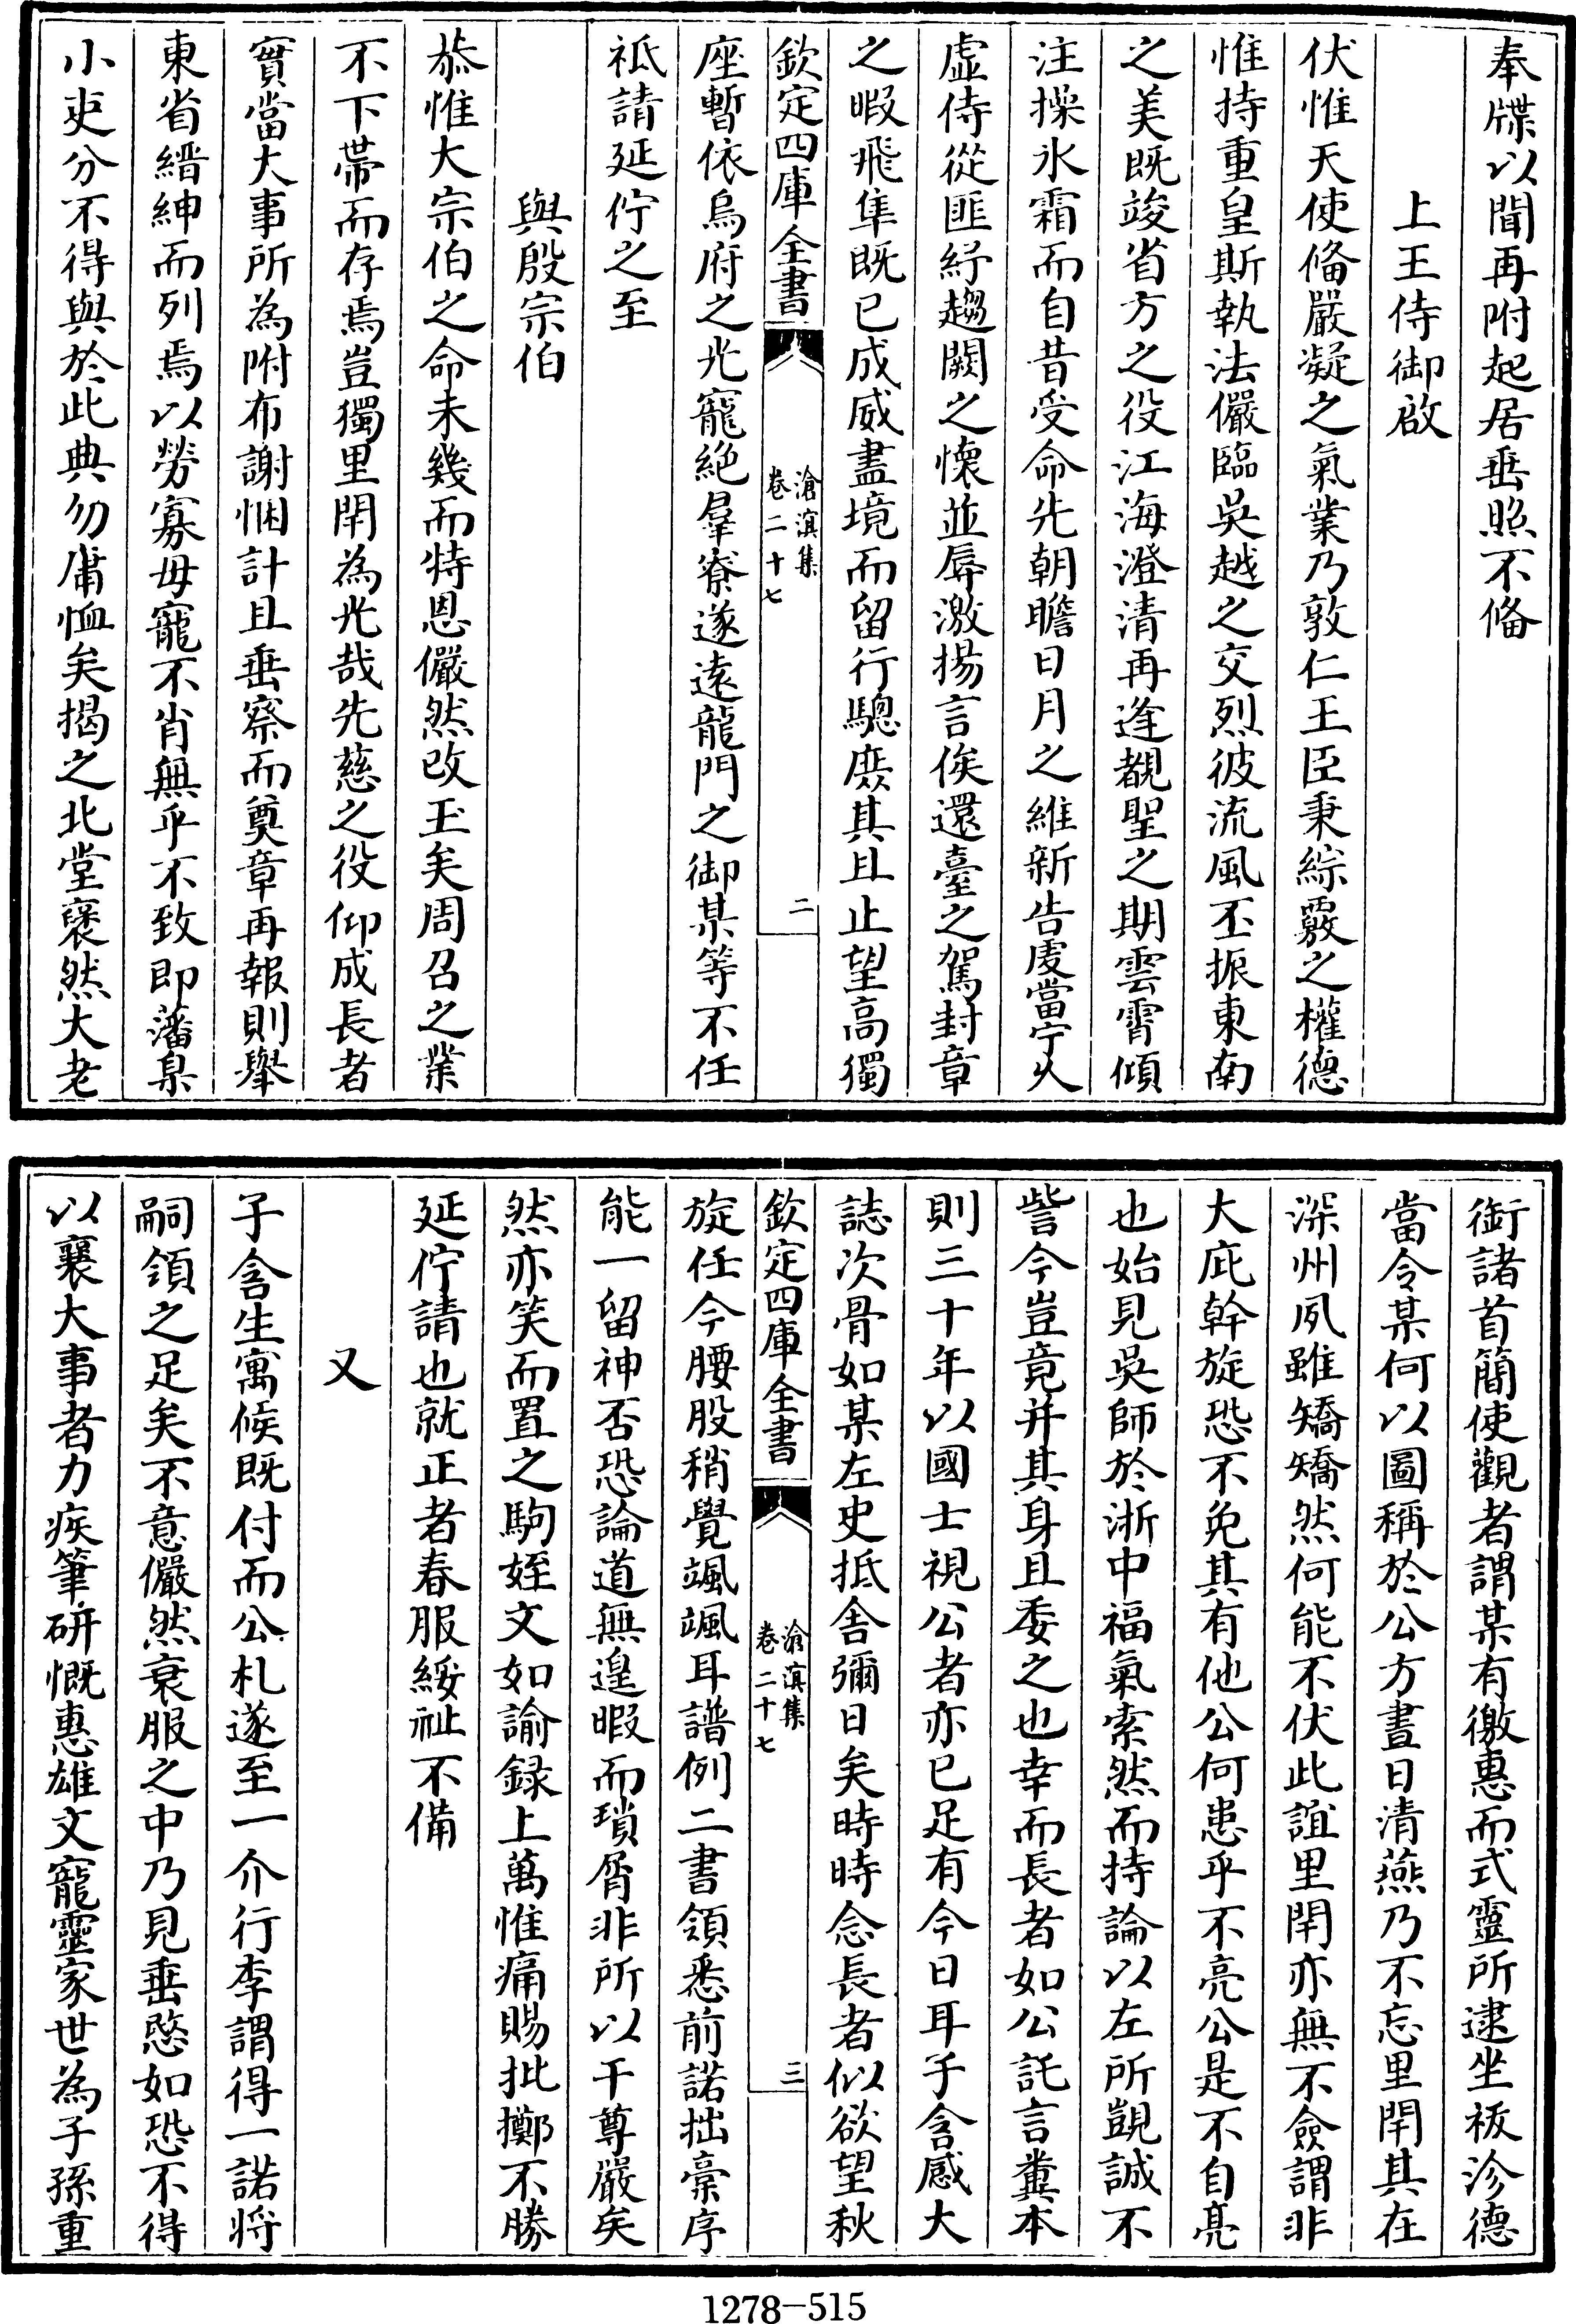 奉牒以聞再附起居垂照不僃
上王侍御啟
伏惟天使僃嚴凝之氣業乃敦仁王臣秉綜覈之權德
惟持重皇斯執法儼臨吳越之交烈彼流風丕振東南
之美既竣省方之役江海澄清再逢覩聖之期雲霄傾
注操氷霜而自昔受命先朝瞻日月之維新告䖍當宁火
虛侍從匪紓趨闕之懷並辱激揚言俟還臺之駕封章
之暇飛隼既已成威盡境而留行驄庶其且止望高獨
欽定四庫全書
滄溟集
卷二十七
二
座暫依烏府之光寵絕羣寮遂遠龍門之御某等不任
祗請延佇之至
與殷宗伯
恭惟大宗伯之命未幾而特恩儼然改玉矣周召之業
不下帶而存焉豈獨里閈為光哉先慈之役仰成長者
實當大事所為附布謝悃計且垂察而奠章再報則舉
東省縉紳而列焉以勞寡母寵不肖無乎不致即藩臬
小吏分不得與於此典勿庸恤矣揭之北堂褒然大老
銜諸首簡使觀者謂某有徼惠而式靈所逮坐袚沴德
當令某何以圖稱於公方晝日清燕乃不忘里閈其在
深州夙雖矯矯然何能不伏此誼里閈亦無不僉謂非
大庇幹旋恐不免其有他公何患乎不亮公是不自亮
也始見吳師於浙中福氣索然而持論以左所覬誠不
訾今豈竟并其身且委之也幸而長者如公託言糞本
則三十年以國士視公者亦已足有今日耳子含感大
誌次骨如某左史抵舍彌日矣時時念長者似欲望秋
欽定四庫全書
滄溟集
卷二十七
三
旋任今腰股稍覺颯颯耳譜例二書領悉前諾拙稾序
能一留神否恐論道無遑暇而瑣屑非所以干尊嚴矣
然亦笑而置之駒姪文如諭録上萬惟痛賜批擲不勝
延佇請也就正者春服綏祉不備
又
子含生寓候既付而公札遂至一介行李謂得一諾將
嗣領之足矣不意儼然衰服之中乃見垂慜如恐不得
以襄大事者力疾筆研慨惠雄文寵靈家世為子孫重
1278—515